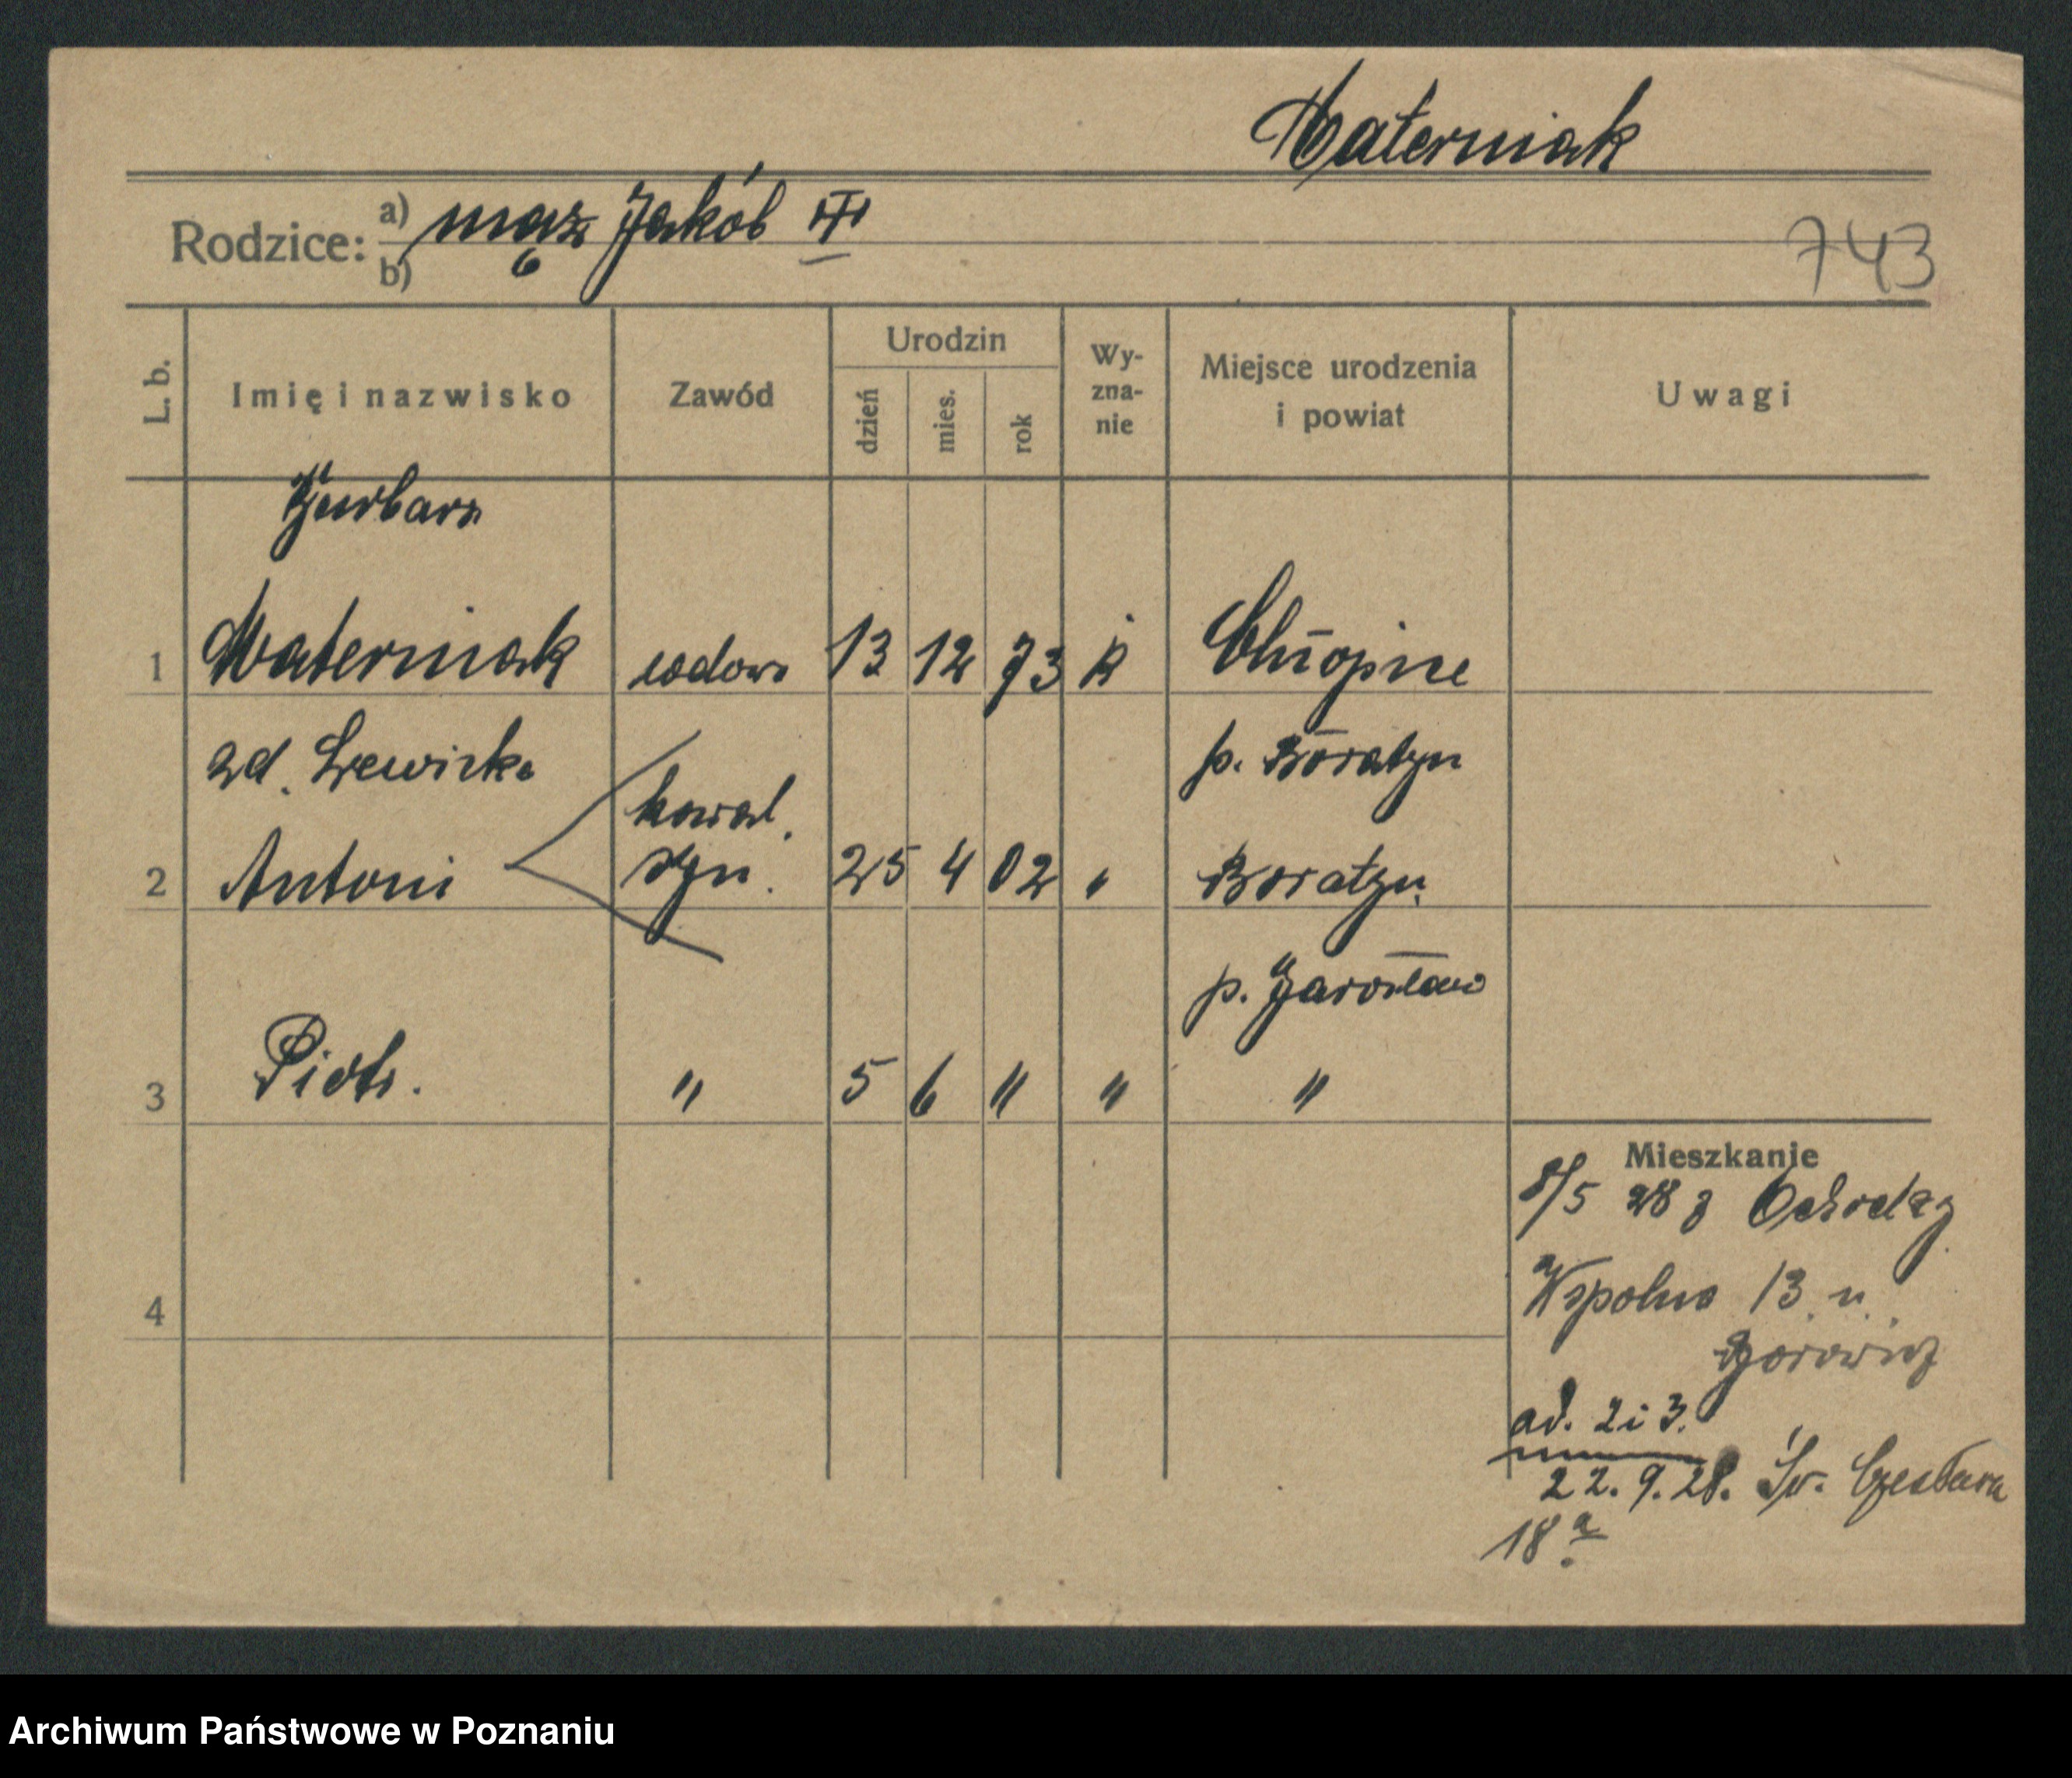 Materniak
Rodzice: a) mąż Jakób III
b)
743
L. b. Imię i nazwisko Zawód Urodzin dzień mies. rok Wyznanie Miejsce urodzenia i powiat Uwagi
1 Materniak wdowa 13 12 73 k Chłopice
zd. Lewicka p. Boratyn
kowal.
2 Antoni syn. 25 4 02 " Boratyn
p. Jarosław
3 Piotr. " 5 6 " " "
4
Mieszkanie
8/5 28 z
Wspólna 13 u.
ad. 2 i 3.
22. 9. 28. Św. Czesława
18 a
Archiwum Państwowe w Poznaniu